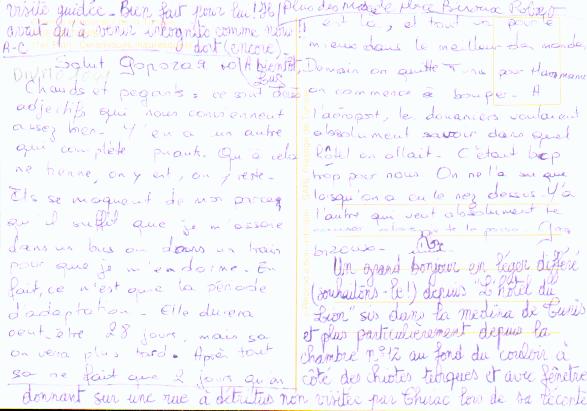 visite guidée. Bien fait pour lui ! Il
avait qu'à venir incognito comme nous
A-C dort (encore).
Salut
A bientôt,
Luc
Chauds et pegants : ce sont deux
adjectifs qui nous conviennent
assez bien. Y en a un autre
qui complète : puants. Qu'à cela
ne tienne, on y est, on y reste.
Ils se moquent de moi parce
qu'il suffit que je m'assoie
dans un bus ou dans un train
pour que je m'endorme. En
fait, ce n'est que la période
d'adaptation. Elle durera
peut-être 28 jours, mais ça
on verra plus tard. Après tout
ça ne fait que 2 jours qu'on
est là, et tout va pour le
mieux dans le meilleur des mondes
Demain on quitte Tunis pour Hammame
on commence à bouger. A
l'aéroport, les douaniers voulaient
absolument savoir dans quel
hôtel on allait. C'était trop
trop pour nous. On ne l'a su que
lorsqu'on a eu le nez dessus. Y'a
l'autre qui veut absolument te
bizouxs.
Un grand bonjour en léger différé
(souhaitons-le !) depuis "L'hôtel du
Lion" sis dans la médina de Tunis
et plus particulièrement depuis la
chambre n°12 au fond du couloir à
côté des chiottes turques et avec fenêtre
donnant sur une rue à détritus non visitée par Chirac lors de sa récente